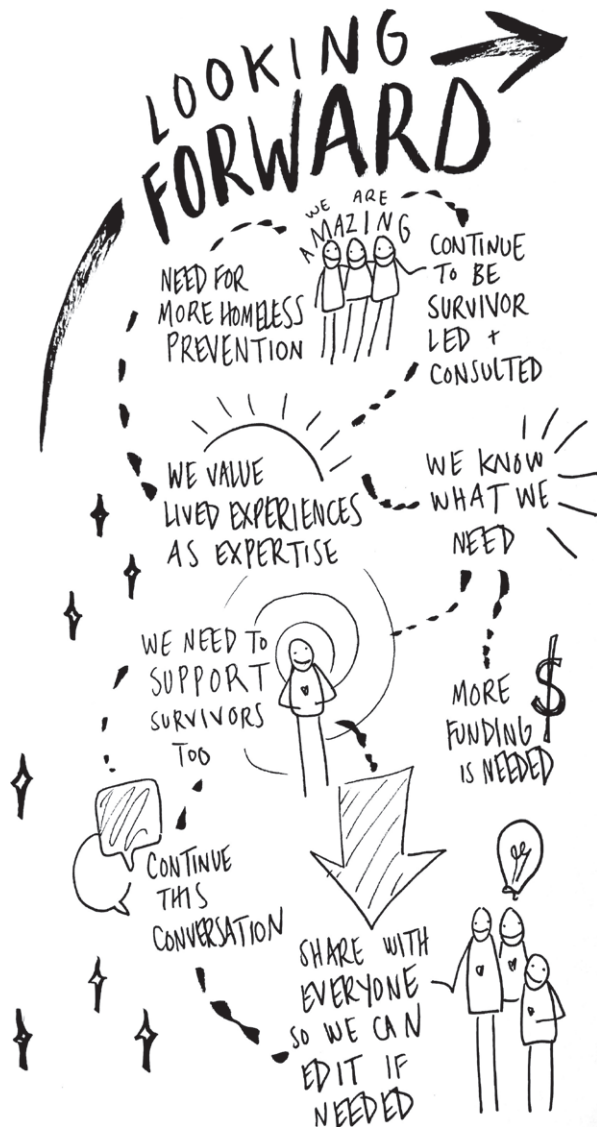 LOOKING
FORWARD
WE ARE
AMAZING
NEED FOR
MORE HOMELESS
PREVENTION
CONTINUE
TO BE
SURVIVOR
LED +
CONSULTED
WE VALUE
LIVED EXPERIENCES
AS EXPERTISE
WE KNOW
WHAT WE
NEED
WE NEED TO
SUPPORT
SURVIVORS
TOO
MORE
FUNDING
IS NEEDED
$
CONTINUE
THIS
CONVERSATION
SHARE WITH
EVERYONE
SO WE CAN
EDIT IF
NEEDED